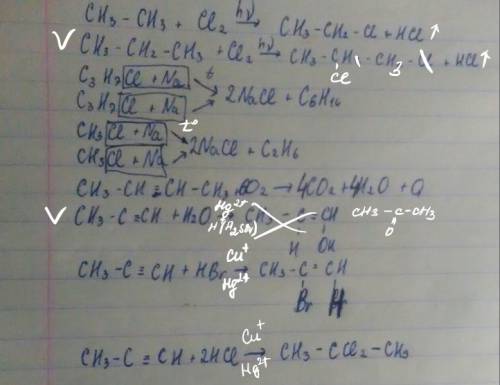 CH₃-CH₃ + Cl₂ hν→ CH₃-CH₂-Cl + HCl↑
V CH₃-CH₂-CH₃ + Cl₂ hν→ CH₃-CH-CH₃ + HCl↑
Cl
C₃H₇ Cl + Na t
C₃H₇ Cl + Na → 2NaCl + C₆H₁₄
CH₃ Cl + Na t°
CH₃ Cl + Na → 2NaCl + C₂H₆
CH₃-CH=CH-CH₃ + 6O₂ → 4CO₂ + 4H₂O + Q
V CH₃-C≡CH + H₂O Hg²⁺ H⁺(H₂SO₄) CH₃-C=CH CH₃-C-CH₃
H OH O
CH₃-C≡CH + HBr Cu⁺ Hg²⁺ → CH₃-C=CH
Br H
CH₃-C≡CH + 2HCl Cu⁺ Hg²⁺ → CH₃-CCl₂-CH₃